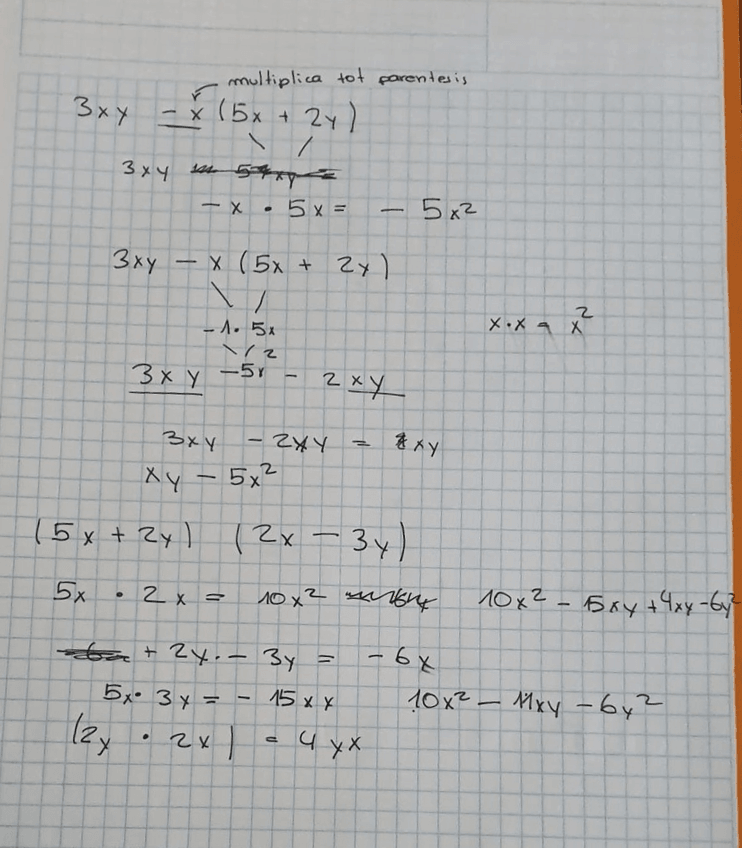 multiplica tot parentesis
3xy - x (5x + 2y)
3xy
- x · 5x = - 5x²
3xy - x (5x + 2y)
-1 · 5x
x·x = x²
3xy -5x² - 2xy
3xy - 2xy = xy
xy - 5x²
(5x + 2y) (2x - 3y)
5x · 2x = 10x² 10x² - 15xy + 4xy - 6y²
+ 2y · - 3y = - 6x
5x · 3y = - 15xx 10x² - 11xy - 6y²
(2y · 2x) = 4yx